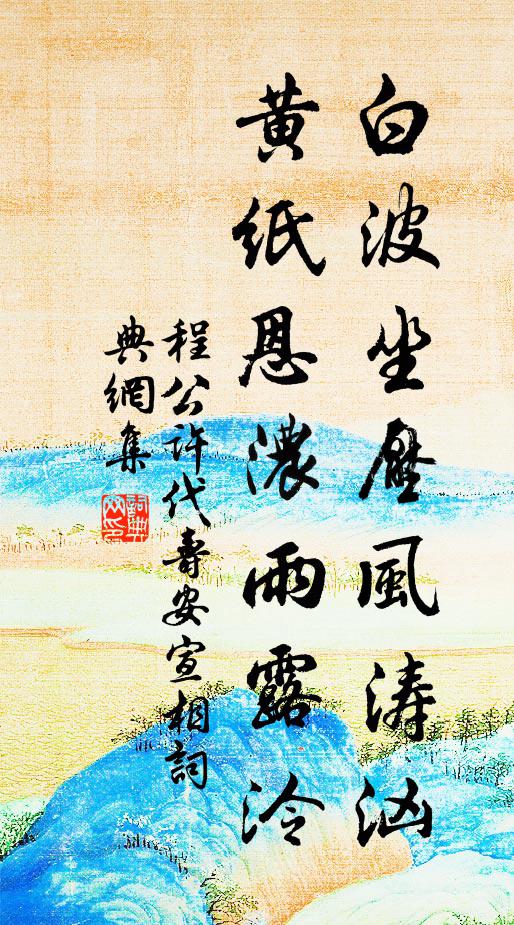 白波坐壓風濤洶
黃紙恩濃雨露泠
程公許代壽安宣相詞
典網集